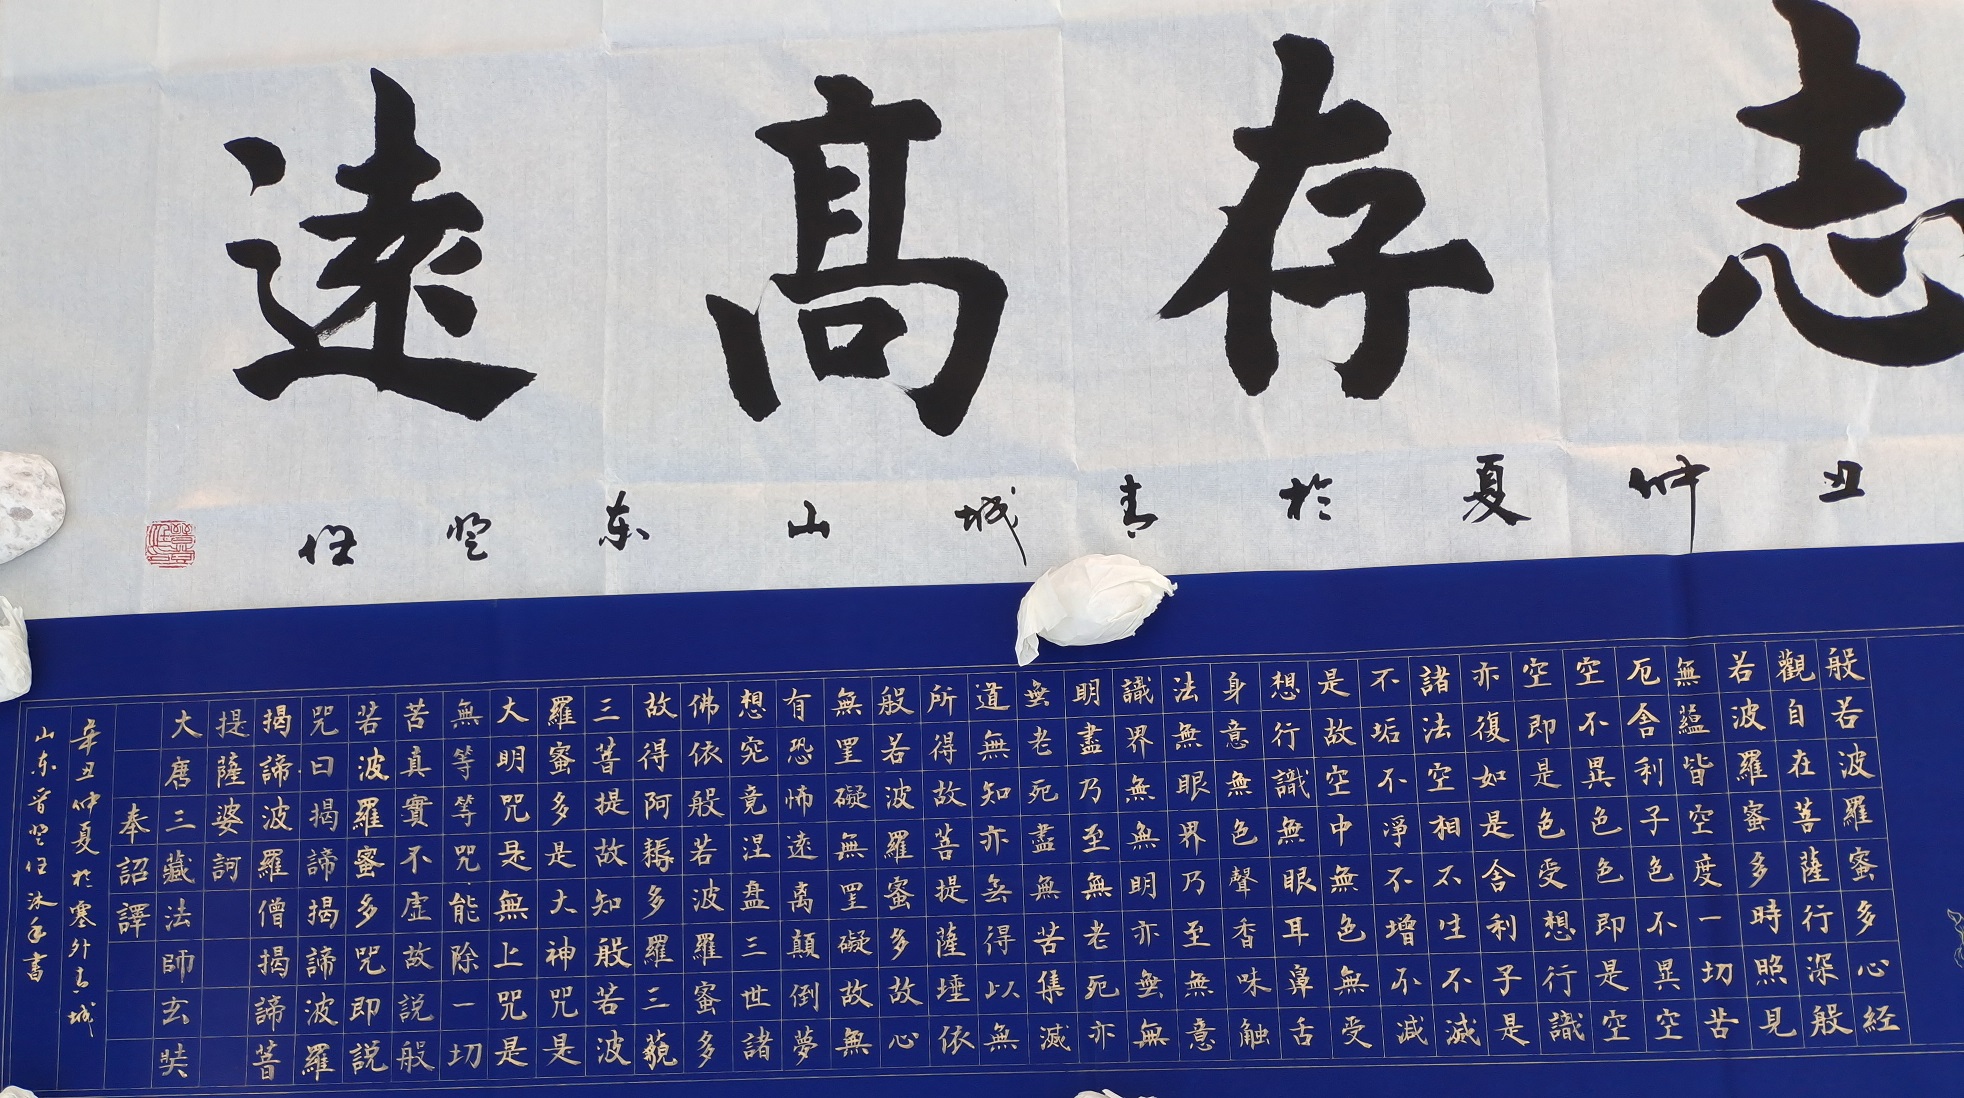 志存髙遠
丑仲夏於青城山东登任
般若波羅蜜多心経
觀自在菩薩行深般
若波羅蜜多時照見
無蘊皆空度一切苦
厄舍利子色不異空
空不異色色即是空
空即是色受想行識
亦復如是舍利子是
諸法空相不生不滅
不垢不淨不增不减
是故空中無色無受
想行識無眼耳鼻舌
身意無色聲香味触
法無眼界乃至無意
識界無無明亦無無
明盡乃至無老死亦
無老死盡無苦集滅
道無知亦無得以無
所得故菩提薩埵依
般若波羅蜜多故心
無罣礙無罣礙故無
有恐怖遠离顛倒夢
想究竟涅盘三世諸
佛依般若波羅蜜多
故得阿耨多羅三藐
三菩提故知般若波
羅蜜多是大神咒是
大明咒是無上咒是
無等等咒能除一切
苦真實不虛故説般
若波羅蜜多咒即説
咒曰揭諦揭諦波羅
揭諦波羅僧揭諦菩
提薩婆訶
大唐三藏法師玄奘
奉詔譯
辛丑仲夏於塞外青城
山东晉登任沐手書